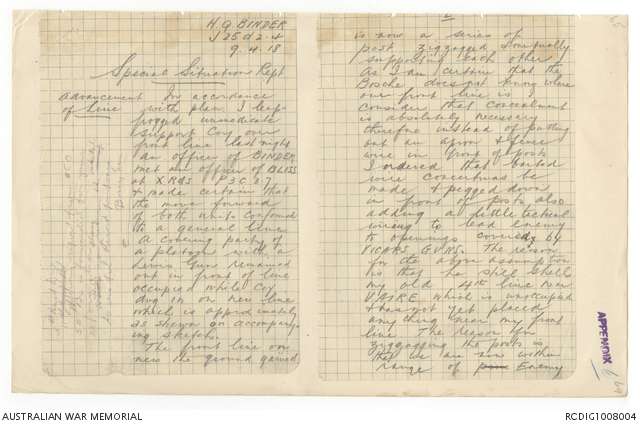 H.Q BINDER
J25d2.4
9.4.18
Special Situation Rept
Advancement of Line
In accordance
with plan I leap-
frogged immediate
support Coy over
front line last night
An officer of BINDER
met an officer of BLISS
at XRds P3C 87
& made certain that
the move forward
of both units conformed
to a general line
A covering party of
a platoon with a
Lewis Gun remained
out in front of line
occupied while Coy
dug in on new line
which is approximately
as shewn on accompany-
ing sketch.
The front line on
new the ground gained
is now a series of
post zigzagged & mutually
supporting each other
As I am certain that the
Bosche does not know where
our front line is I
consider that concealment
is absolutely necessary
therefore instead of putting
out an apron & fence
wire in front of posts
I ordered that barbed
wire concertinas be
made & pegged down
in front of posts also
adding a little tactical
wiring to lead Enemy
to openings covered by
VICARS GUNS. The reason
for the above assumption
is that he still shells
my old 4th line near
VAIRE which is unoccupied
& has not yet placed
anything near my front
line. The reason for
zigzagging the posts is
that we are now within
range of Enemy
APPENDIX
AUSTRALIAN WAR MEMORIAL
RCDIG1008004